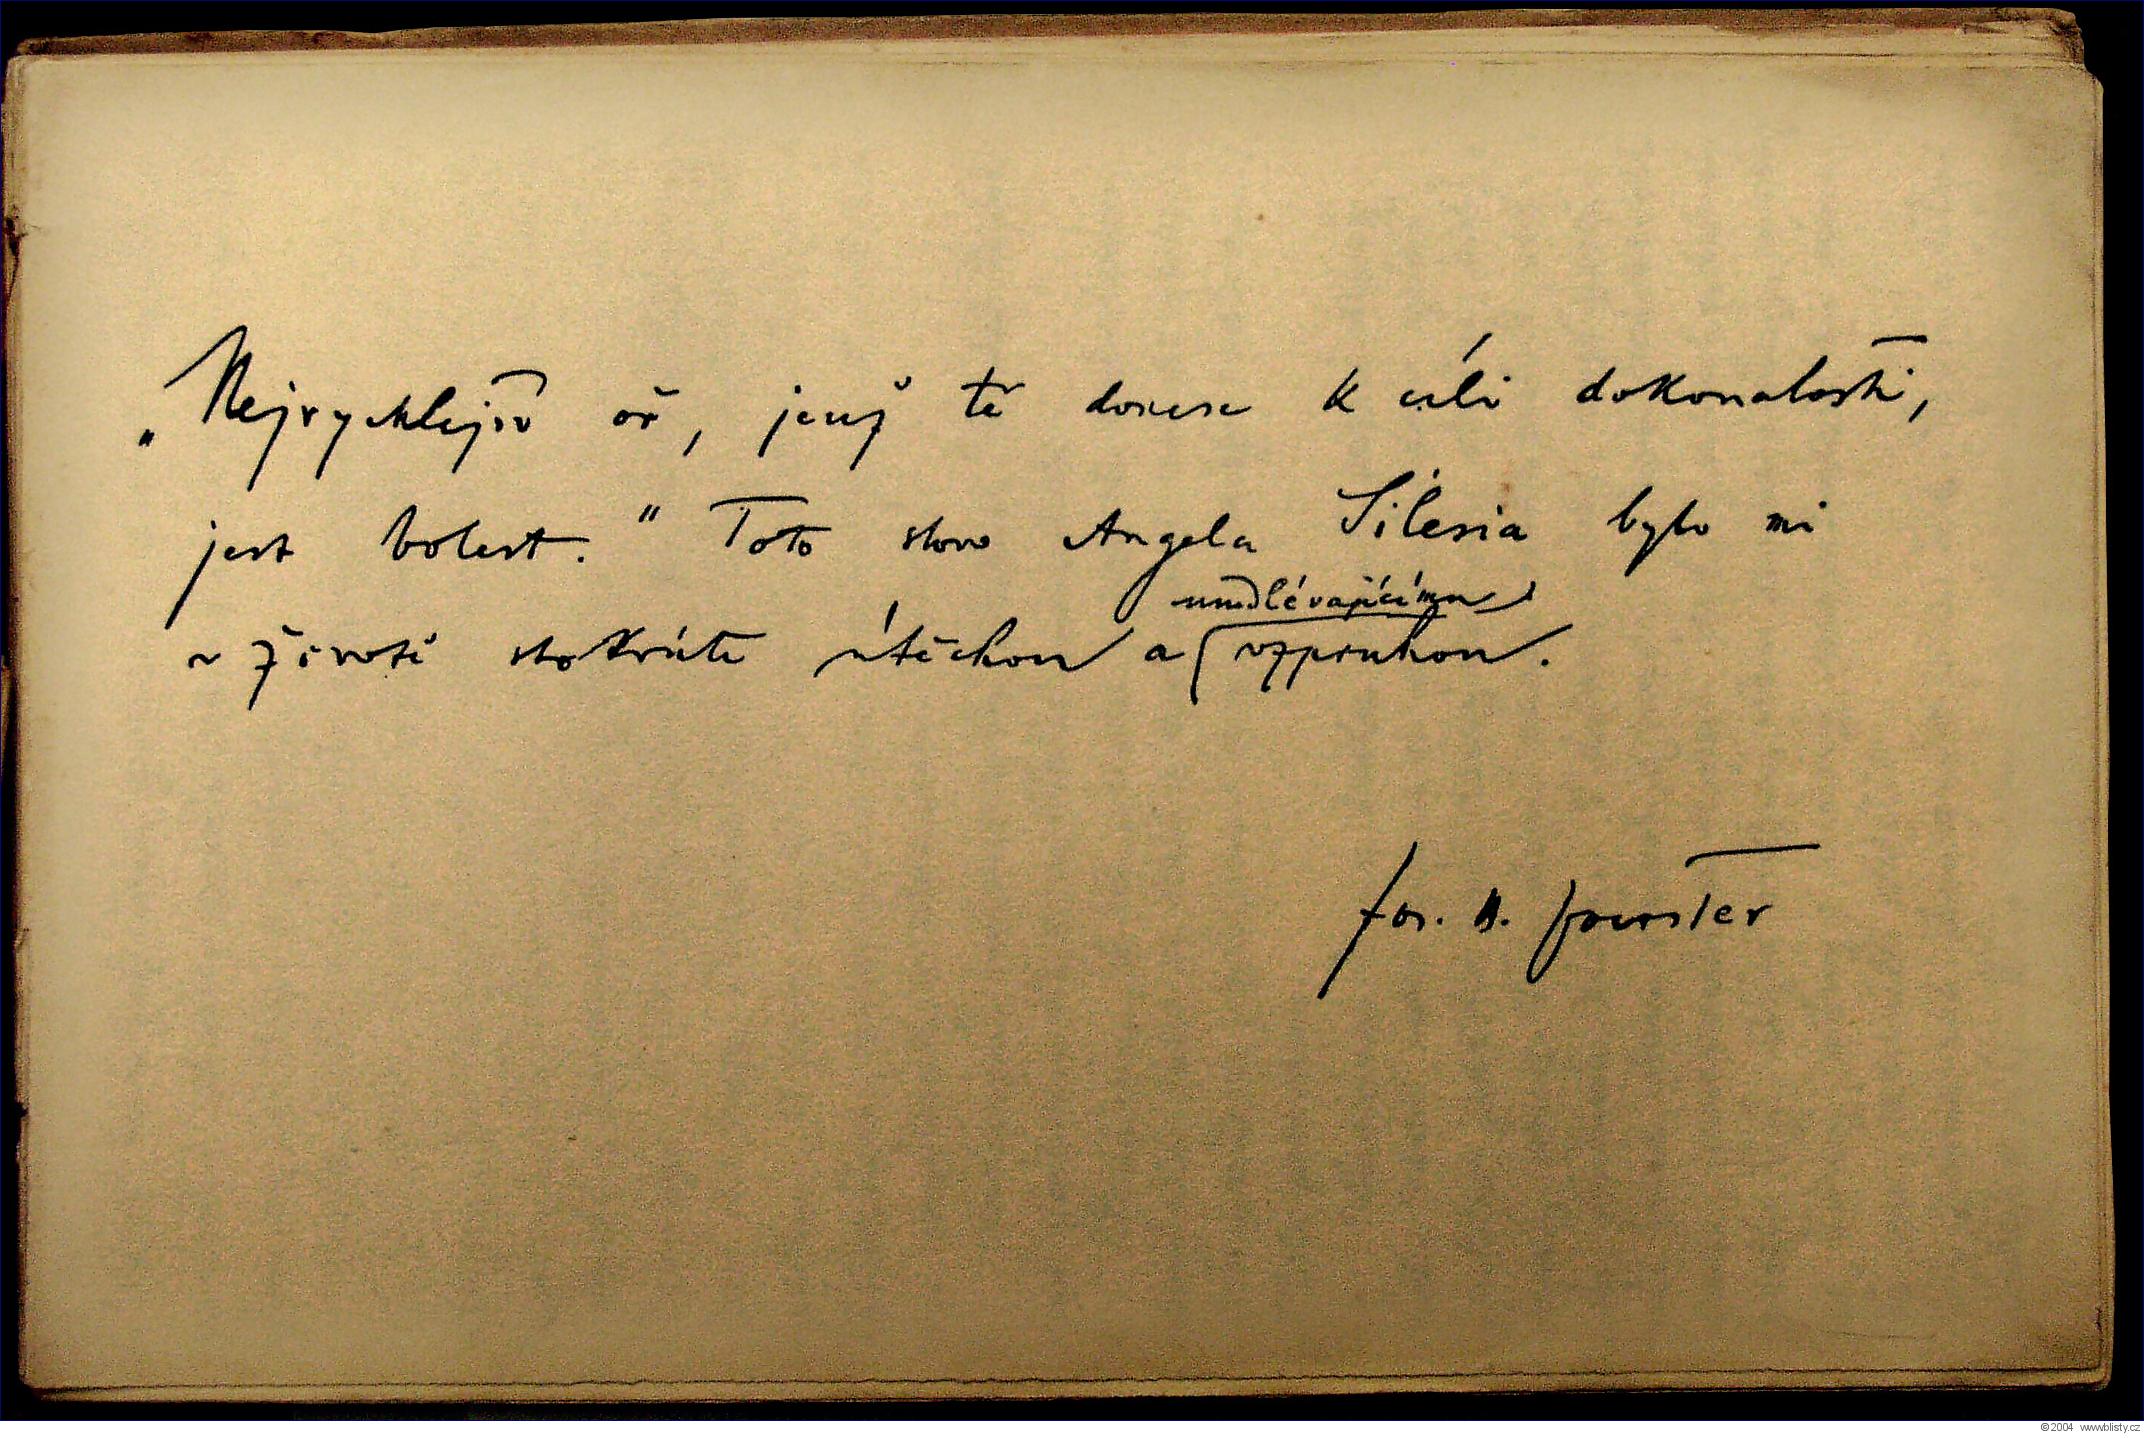 „Nejrychlejší oř, jenž tě donese k cíli dokonalosti,
jest bolest.“ Toto slovo Angela Silesia bylo mi
umdlévajícímu
v životě stokráte útěchou a vzpruhou.
Jos. B. Foerster
© 2004 www.blisty.cz